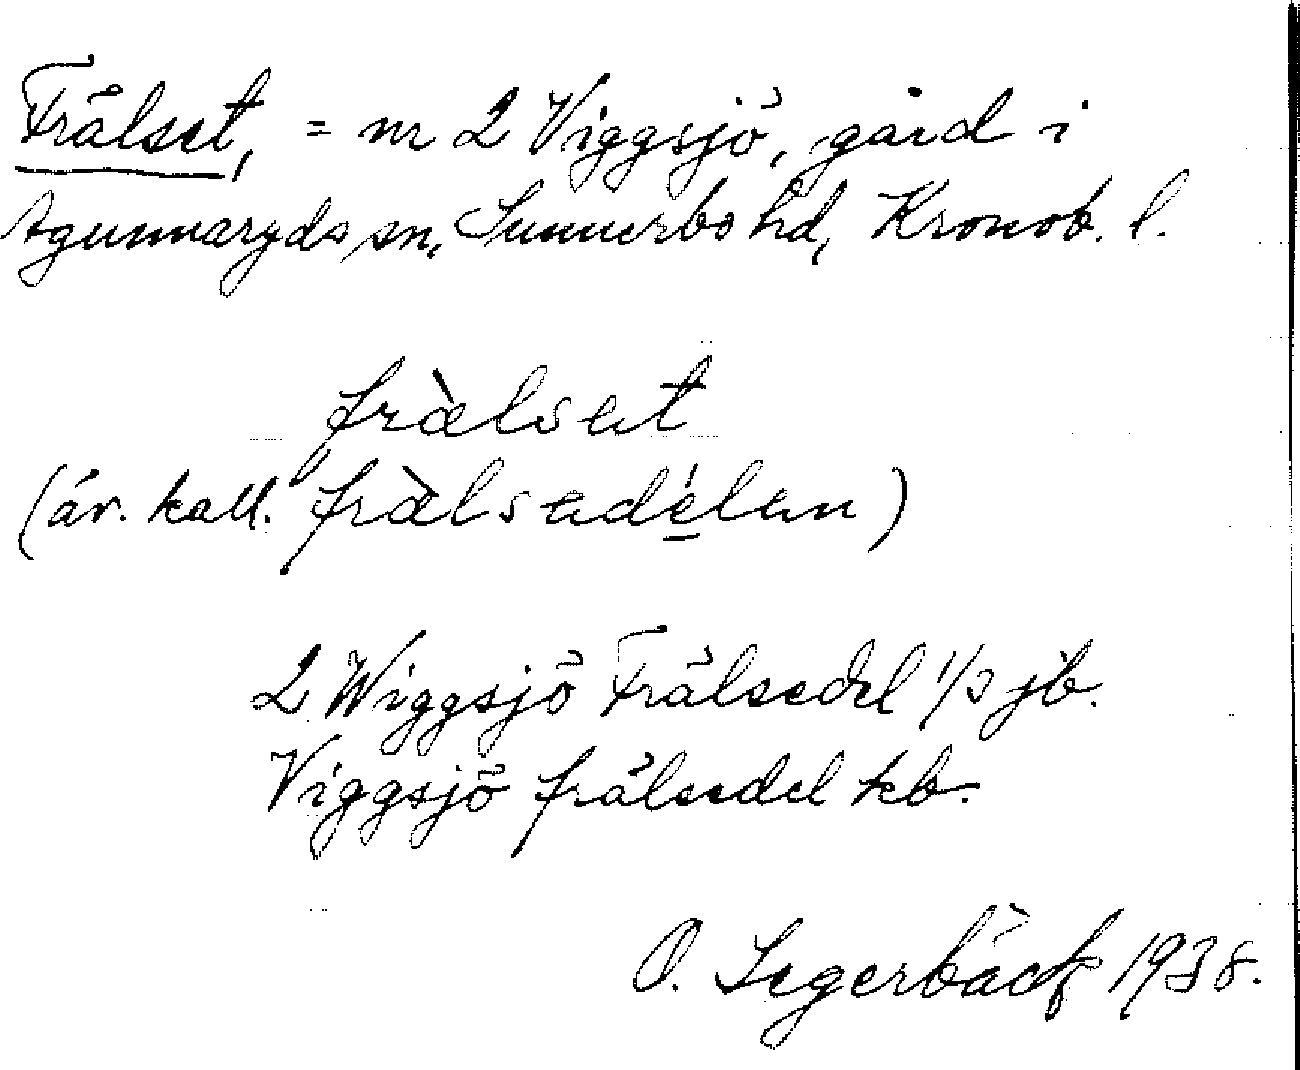 Frälset, = nr 2 Viggsjö, gård i
Agunnaryds sn, Sunnerbo hd, Kronob. l.
fràlsat
(äv. kall. fràlsadélan)
2 Wiggsjö Frälsedel 1/3 jb.
Viggsjö frälsedel kb.
O. Segerbäck 1938.